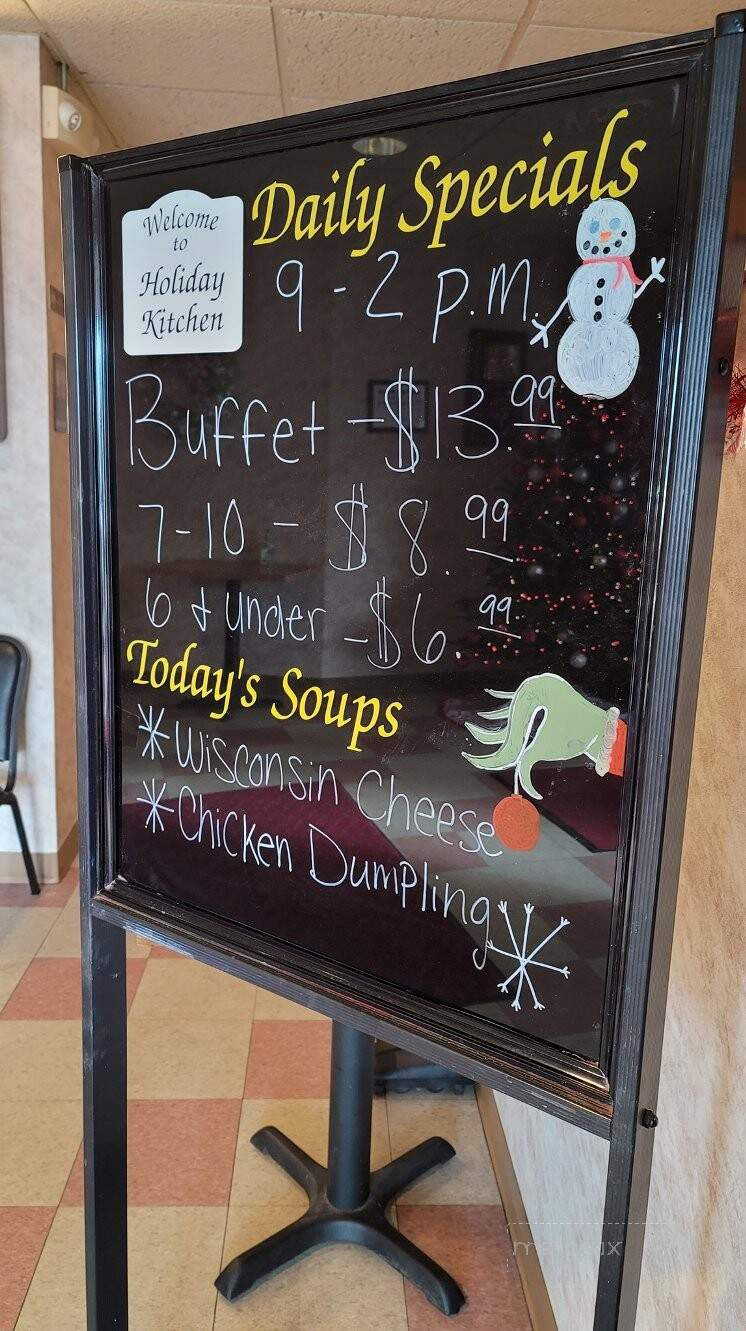 Daily Specials
Welcome
to
Holiday
Kitchen
9-2 p.m.
Buffet - $13.99
7-10 - $8.99
6 & under - $6.99
Today's Soups
*Wisconsin Cheese
*Chicken Dumpling